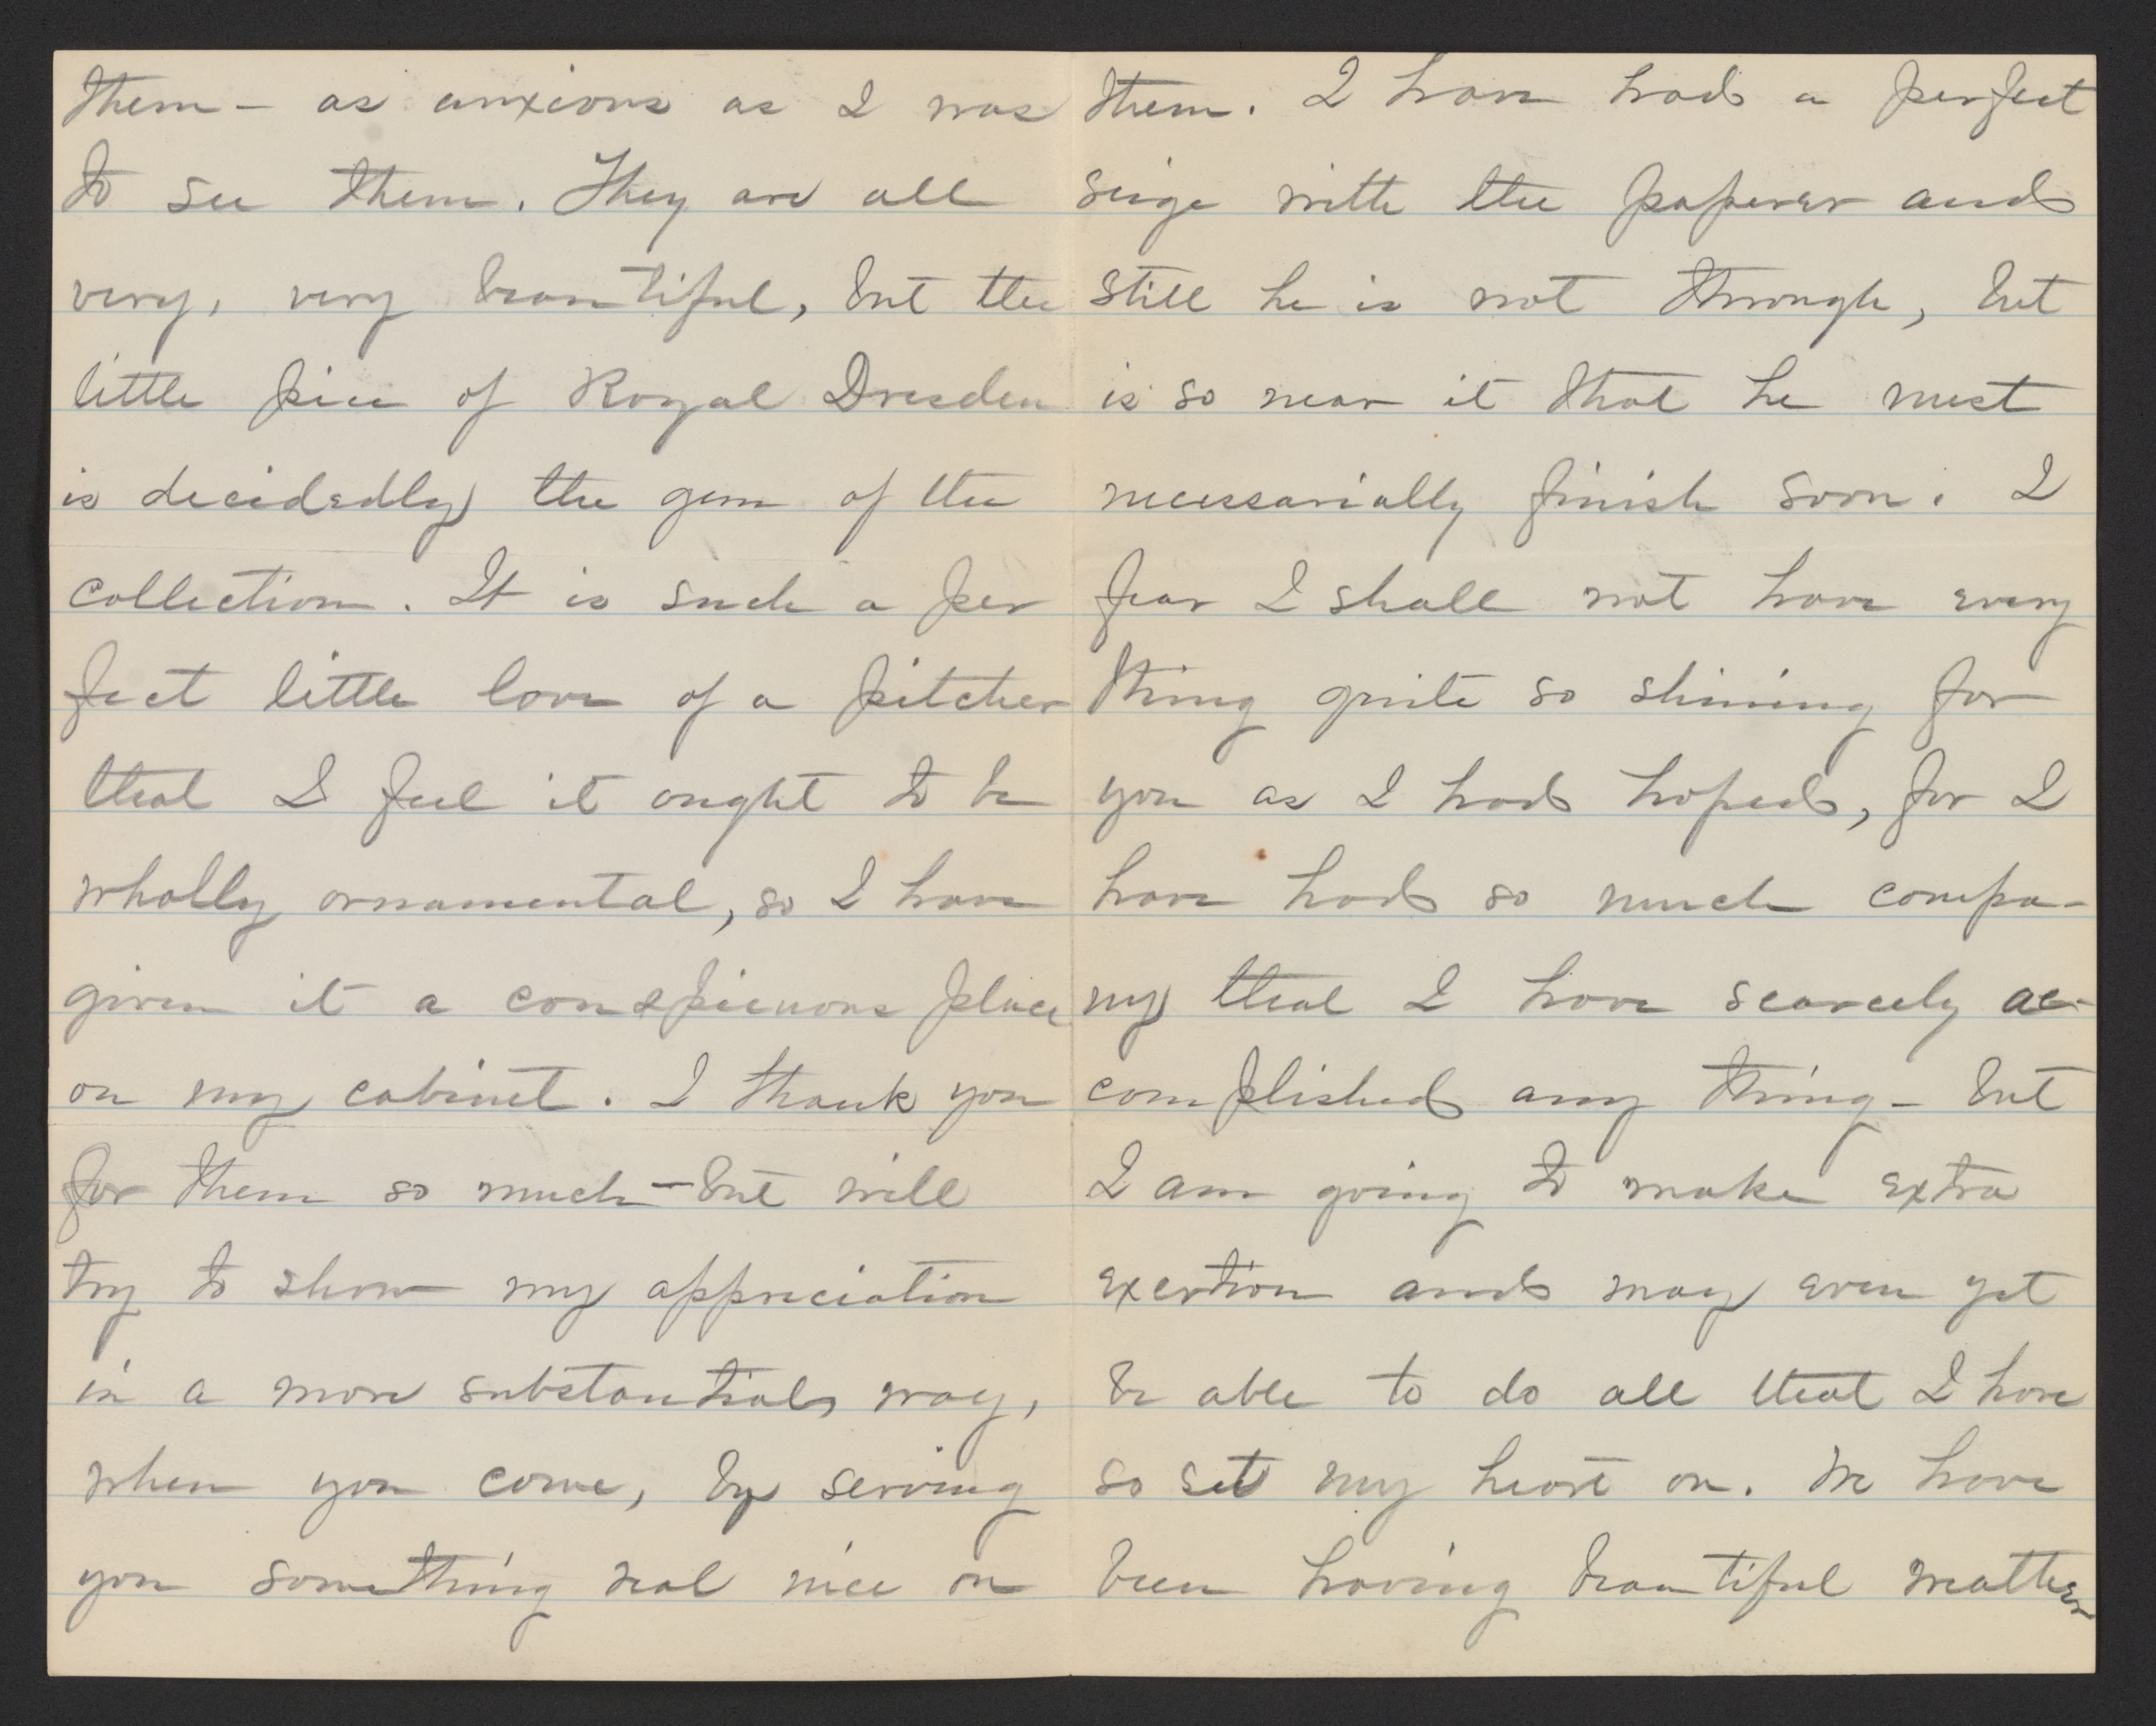 them - as anxious as I was
to see them. They are all
very, very beautiful, but the
little piece of Royal Dresden
is decidedly the gem of the
collection. It is such a per
fect little love of a pitcher
that I feel it ought to be
wholly ornamental, so I have
given it a conspicuous place
on my cabinet. I thank you
for them so much - but will
try to show my appreciation
in a more substantial way,
when you come, by serving
you something real nice on
them. I have had a perfect
seige with the paperer and
still he is not through, but
is so near it that he must
necessarially finish soon. I
fear I shall not have every
thing quite so shining for
you as I had hoped, for I
have had so much compa-
ny that I have scarcely ac-
complished any thing - but
I am going to make extra
exertion and may even yet
be able to do all that I have
so set my heart on. We have
been having beautiful weather